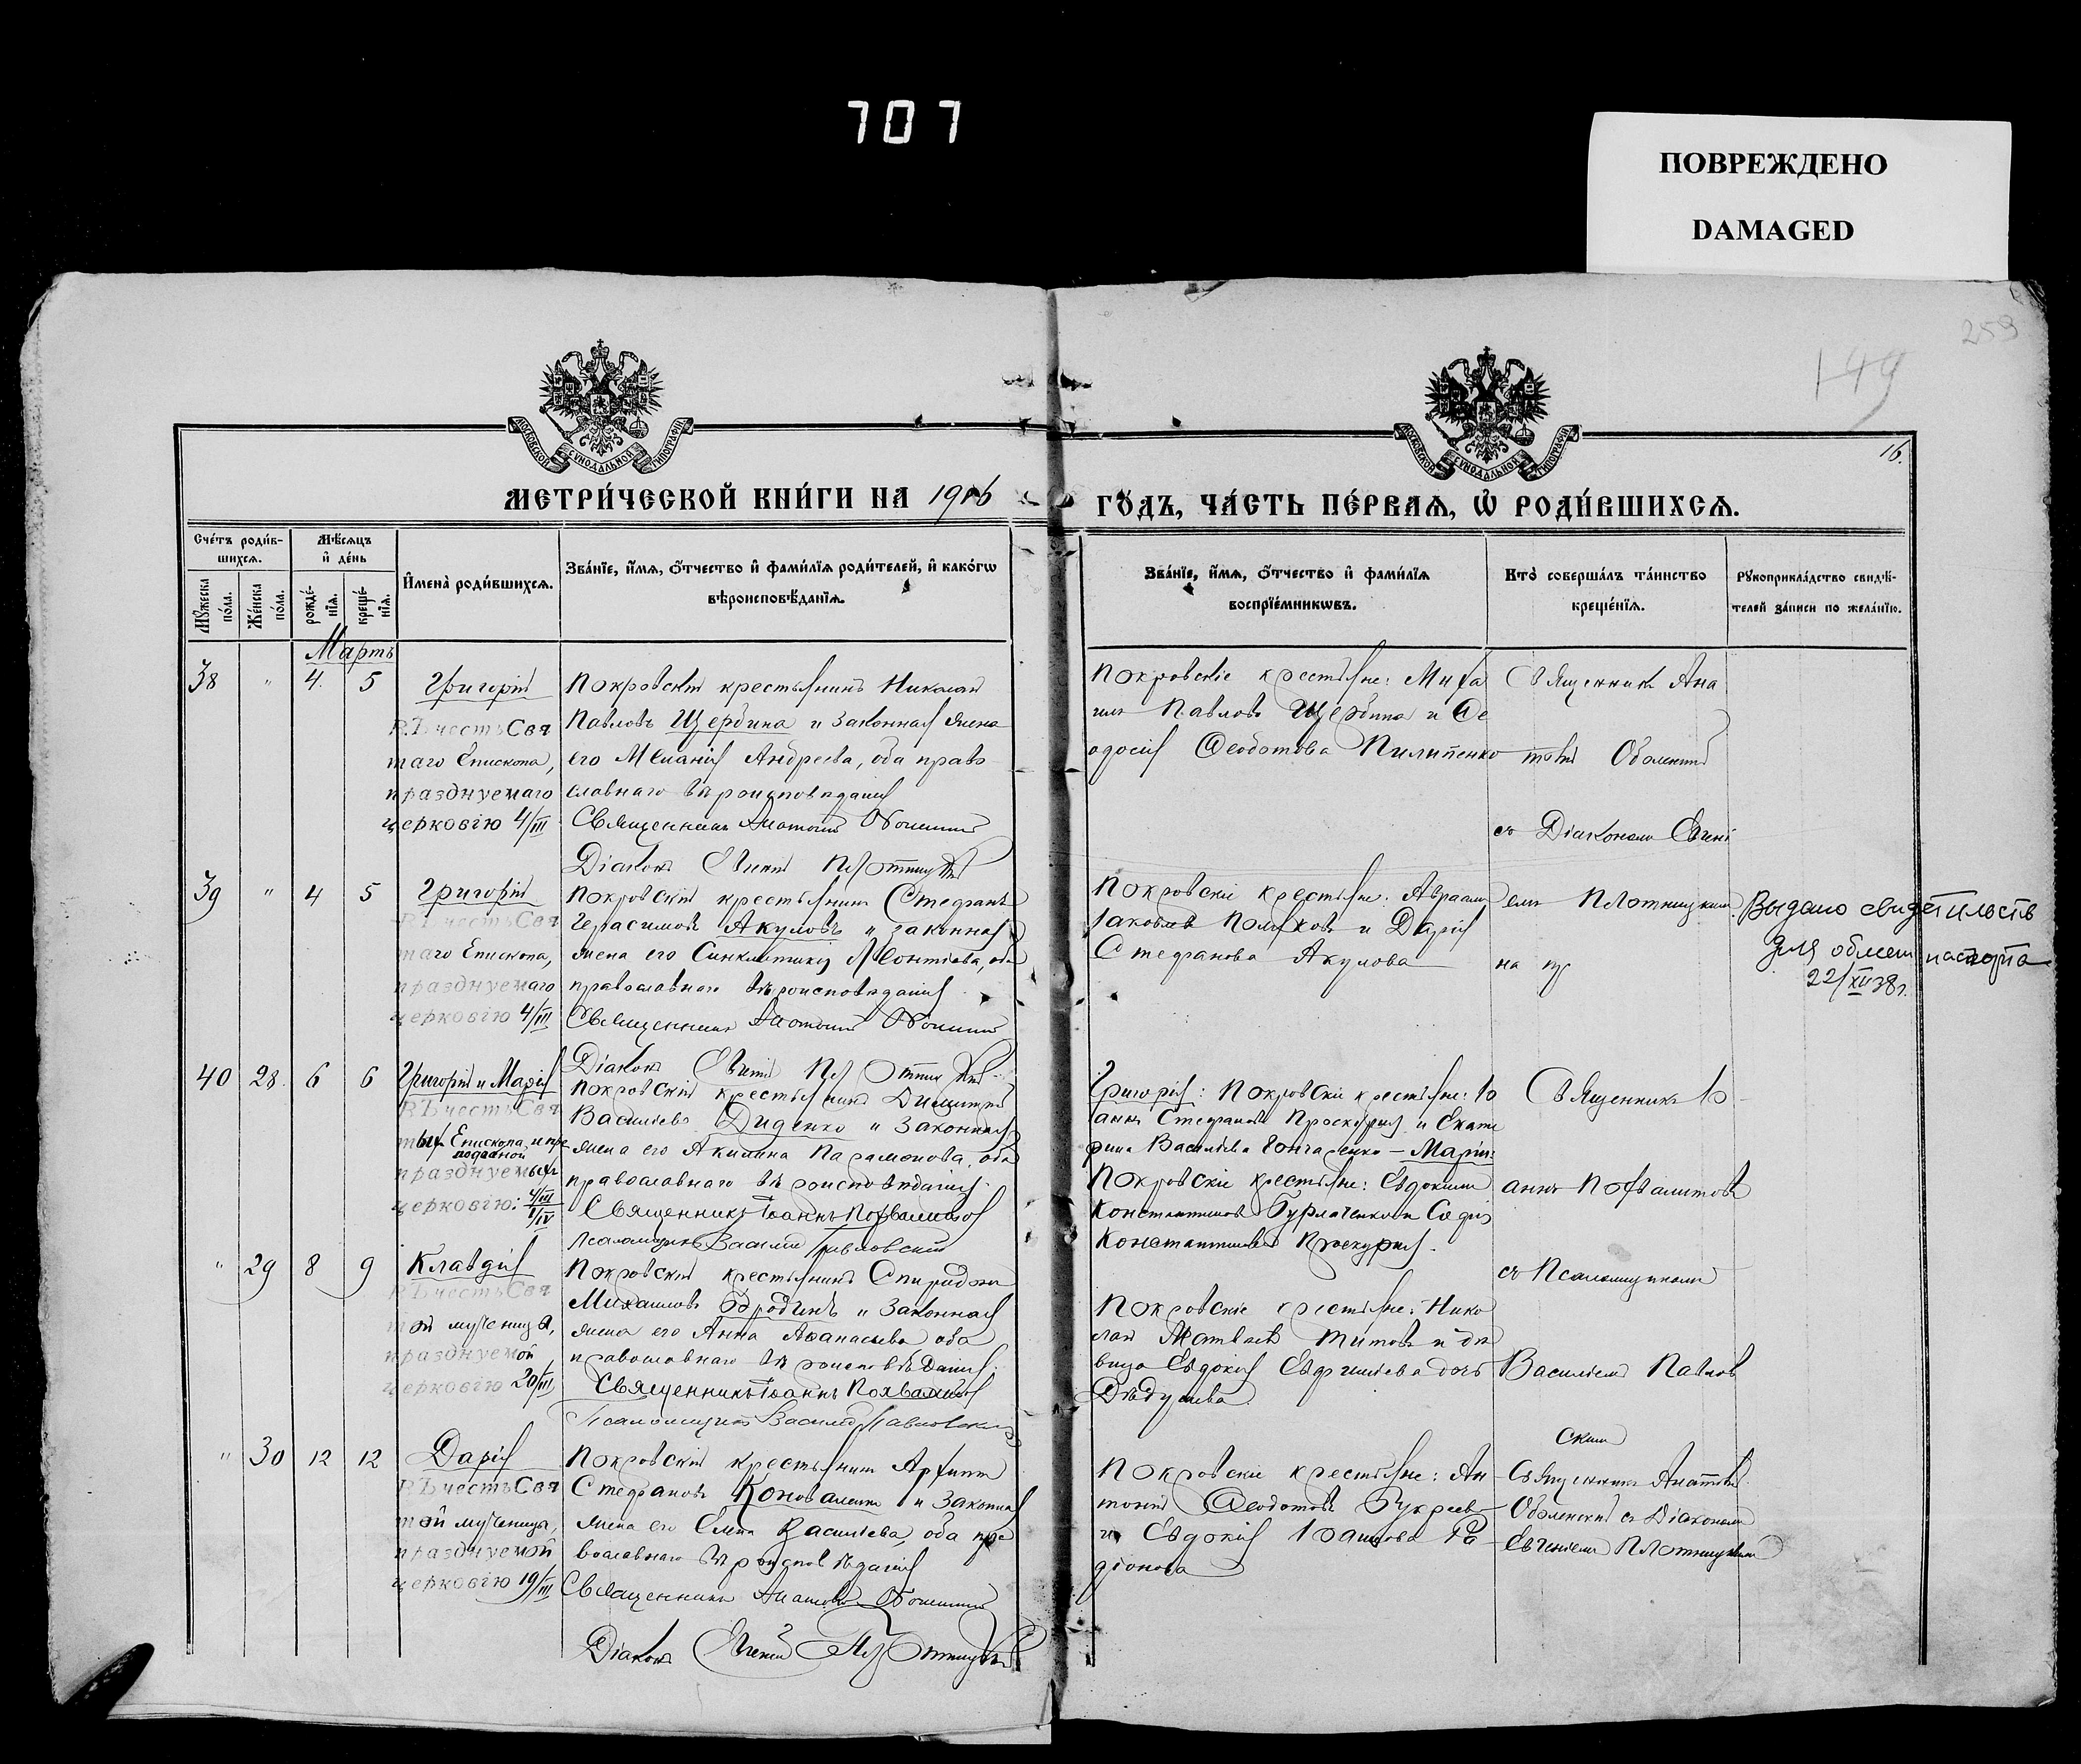 707
ПОВРЕЖДЕНО
DAMAGED
259
149
16.
МОСКОВСКОЙ СѴНОДАЛЬНОЙ ТИПОГРАФІИ
МОСКОВСКОЙ СѴНОДАЛЬНОЙ ТИПОГРАФІИ
МЕТРИ́ЧЕСКОЙ КНИ́ГИ НА 1916
ГО́ДЪ, ЧА́СТЬ ПЕ́РВАѦ, Ѡ҆ РОДИ́ВШИХСѦ.
Сче́тъ роди́в-
шихсѧ.
Мѣ́сѧцъ
и҆ де́нь
Мꙋ́жеска по́ла.
Же́нска по́ла.
рожде́-нїѧ.
креще́-нїѧ.
И҆мена̀ роди́вшихсѧ.
Зва́нїе, и҆́мѧ, ѻ҆́тчество и҆ фами́лїѧ роди́телей, и҆ како́гѡ
вѣроисповѣ́данїѧ.
Зва́нїе, и҆́мѧ, ѻ҆́тчество и҆ фами́лїѧ
воспрїе́мникѡвъ.
Кто̀ соверша́лъ та́инство
креще́нїѧ.
Рꙋкоприкла́дство свидѣ́-
телей за́писи по жела́нїю.
Мартъ
38 " 4. 5 Григорій
Въ честь Свя
таго Епископа,
празднуемаго
церковію 4/III
Покровскій крестьянинъ Николай
Павловъ Щербина и законная жена
его Меланія Андреева, оба право
славнаго вѣроисповѣданія
Священникъ Анатолій Оболенскій
Діаконъ Евгеній Плотницкій
Покровскіе крестьяне: Миха
илъ Павловъ Щербина и Ѳе
одосія Ѳеодотова Пилипенко
Священникъ Ана
толій Оболенскій
съ Діакономъ Евгені
39 " 4 5 Григорій
Въ честь Свя
таго Епископа,
празднуемаго
церковію 4/III
Покровскій крестьянинъ Стефанъ
Герасимовъ Акуловъ и законная
жена его Синклитикія Леонтіева, оба
православнаго вѣроисповѣданія
Священникъ Анатолій Оболенскій
Діаконъ Евгеній Плотницкій
Покровскіе крестьяне: Авраамъ
Іаковлевъ Поляковъ и Дарія
Стефанова Акулова
емъ Плотницкимъ
Выдано свидетильств
для обмен паспорта
22/XII 38 г.
40 28. 6 6 Григорій и Марія
Въ честь Свя
тыхъ Епископа и пре
подобной
празднуемыхъ
церковію: 4/III
1/IV
Покровскій крестьянинъ Димитрій
Васильевъ Диденко и законная
жена его Акилина Парамонова, оба
православнаго вѣроисповѣданія.
Священникъ Іоаннъ Похвалитовъ
Псаломщикъ Василій Павловскій
Григорія: Покровскіе крестьяне: Іо
аннъ Стефановъ Проскуряк и Екате
рина Васильева Гончаренко – Маріи:
Покровскіе крестьяне: Евдокимъ
Константиновъ Бурлаченко и Софія
Константинова Проскуряк.
Священникъ Іо
аннъ Похвалитовъ
съ Псаломщикомъ
" 29 8 9 Клавдія
Въ честь Свя
той мученицы,
празднуемой
церковію 20/III
Покровскій крестьянинъ Спиридонъ
Михаиловъ Бродинъ и законная
жена его Анна Аѳанасьева оба
православнаго вѣроисповѣданія.
Священникъ Іоаннъ Похвалитовъ
Псаломщикъ Василій Павловскій
Покровскіе крестьяне: Нико
лай Матвѣевъ Титовъ и дѣ
вица Евдокія Евфиміева дочь
Дѣдушева.
Василіемъ Павлов
скимъ
" 30 12 12 Дарія
Въ честь Свя
той мученицы,
празднуемой
церковію 19/III
Покровскій крестьянинъ Архиппъ
Стефановъ Коноваленко и законная
жена его Елена Васильева, оба пра
вославнаго вѣроисповѣданія
Священникъ Анатолій Оболенскій
Діаконъ Евгеній Плотницкій
Покровскіе крестьяне: Ан
тоній Ѳеодотовъ Букреевъ
и Евдокія Іоаннова Ро
діонова
Священникъ Анатолій
Оболенскій съ Діакономъ
Евгеніемъ Плотницкимъ